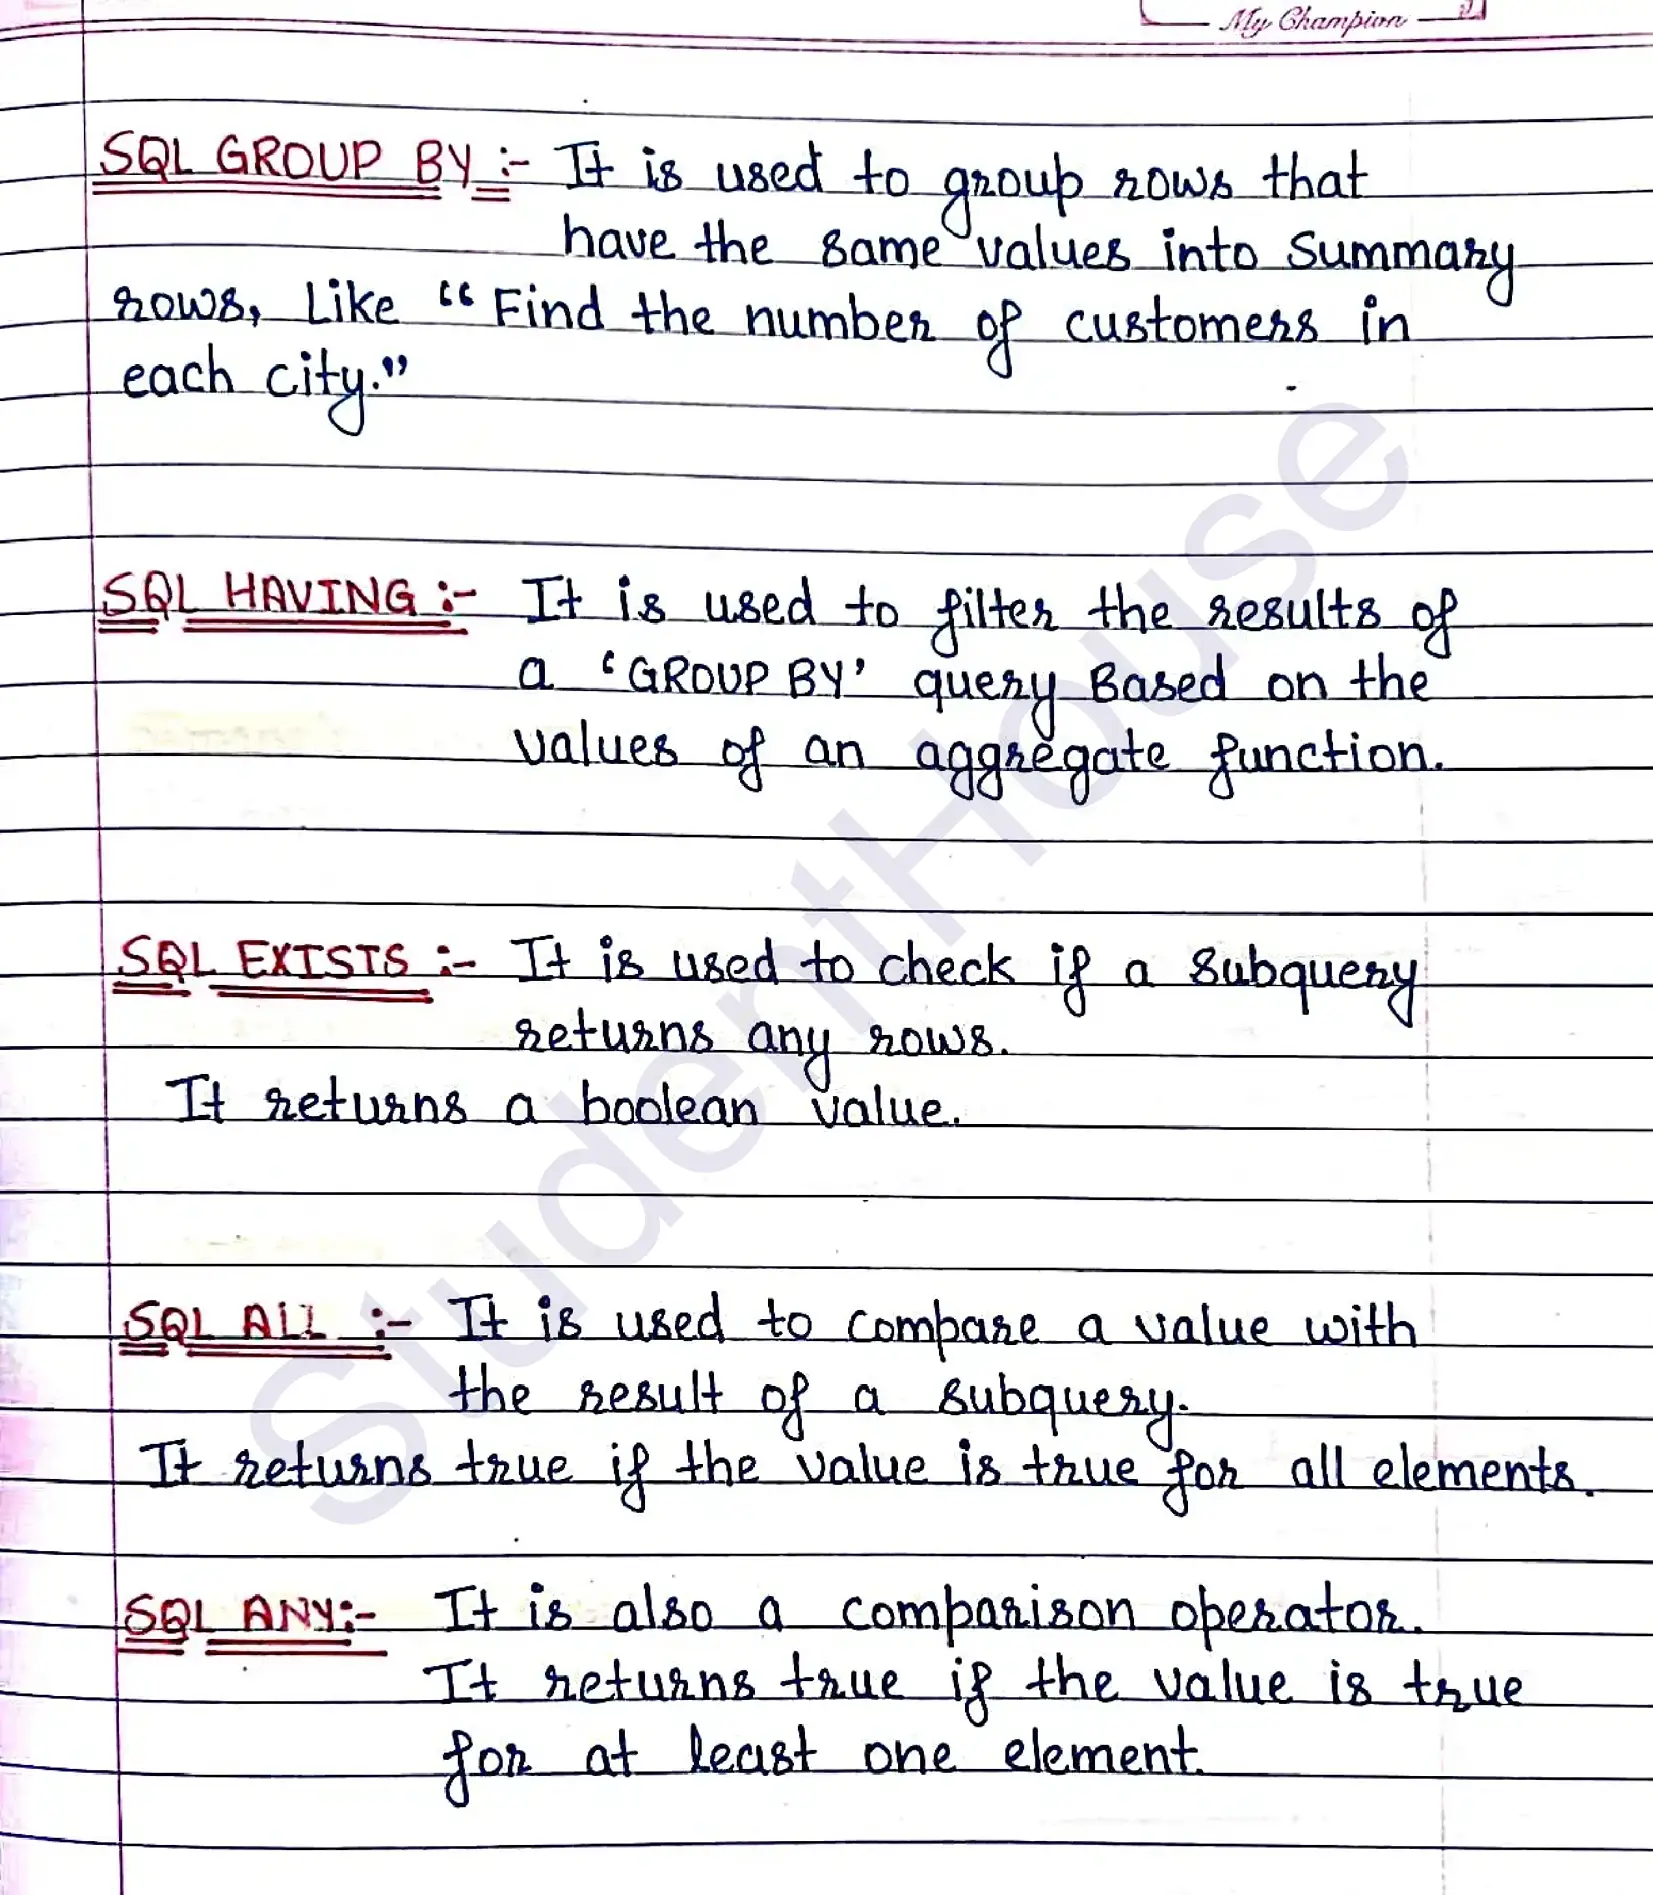 My Champion
SQL GROUP BY :- It is used to group rows that
have the same values into Summary
rows, Like “Find the number of customers in
each city.”
SQL HAVING :- It is used to filter the results of
a ‘GROUP BY’ query Based on the
values of an aggregate function.
SQL EXISTS :- It is used to check if a Subquery
returns any rows.
It returns a boolean value.
SQL ALL :- It is used to compare a value with
the result of a subquery.
It returns true if the value is true for all elements.
SQL ANY:- It is also a comparison operator.
It returns true if the value is true
for at least one element.
StudentHouse